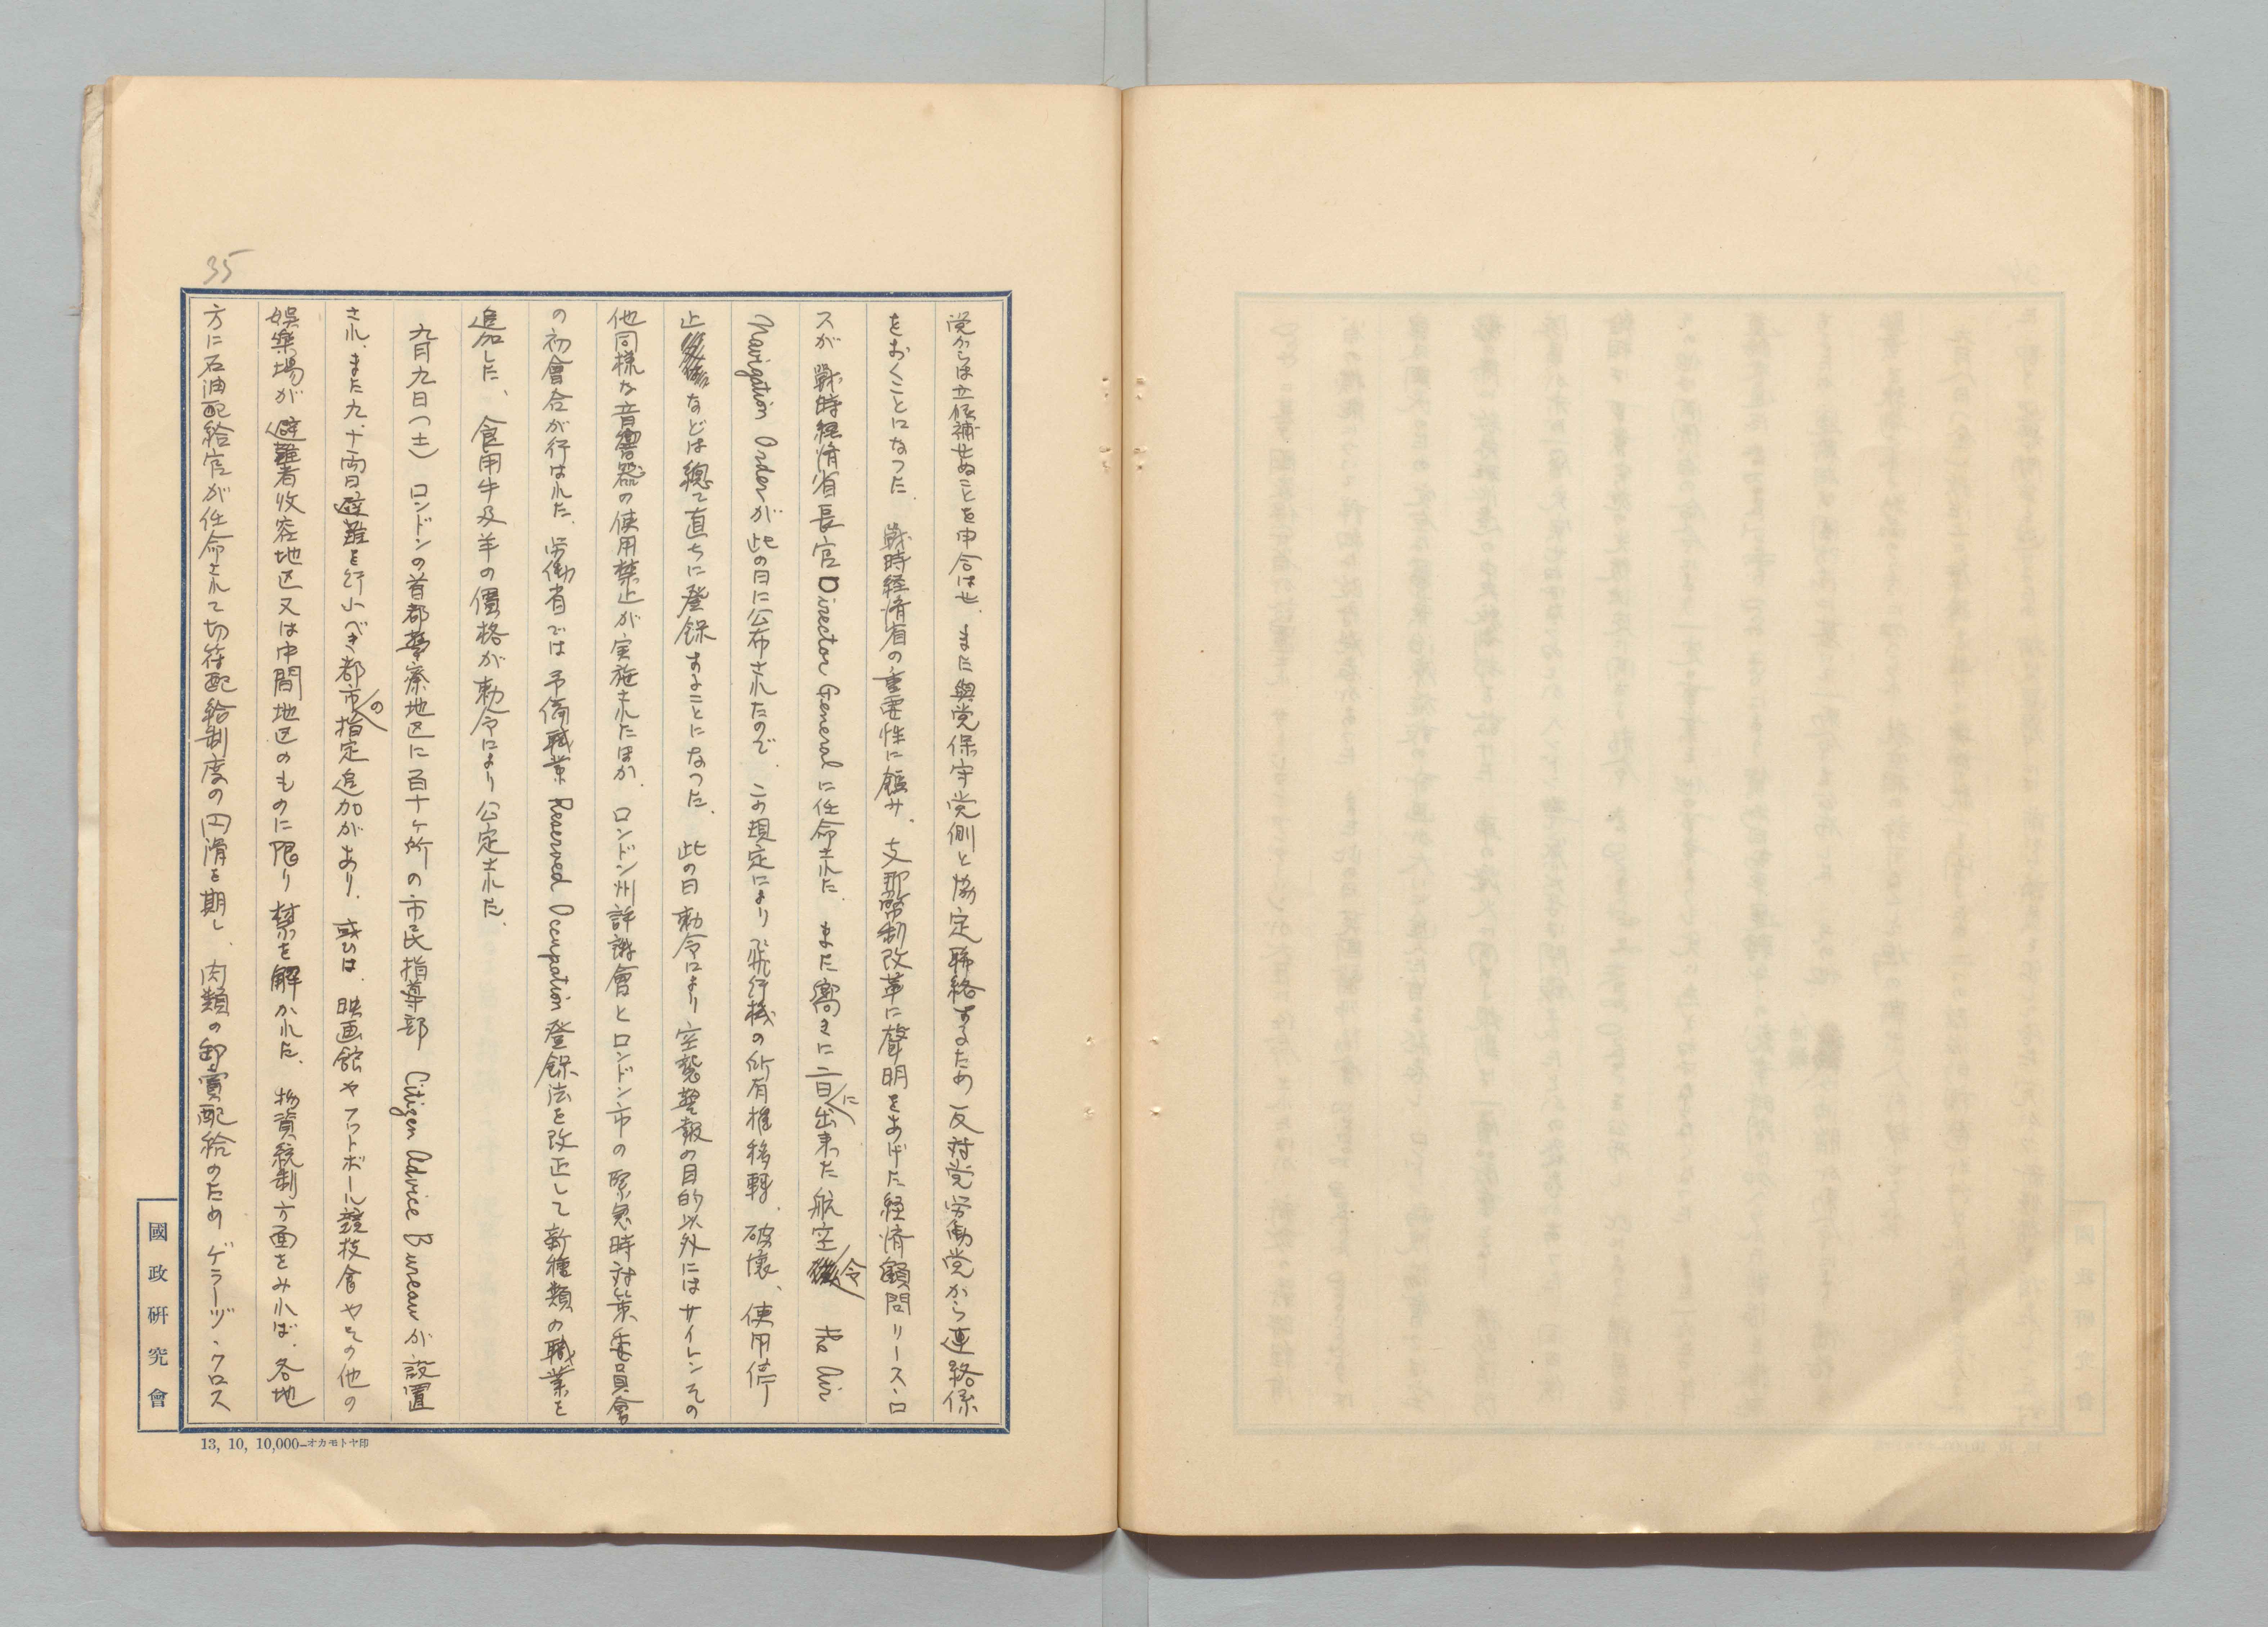 35
党からは立候補せぬことを申合はせ、また與党保守党側と協定聯絡するため反対党労働党から連絡係
をおくことになつた。戦時経済省の重要性に鑑み、支那幣制改革に聲明をあげた経済顧問リース・ロ
スが戦時経済省長官Director Generalに任命された。また嚮きに二日に出来た航空令 the Air
Navigation Orderが此の日に公布されたので、この規定により飛行機の所有権移轉、破壊、使用停
止などは總て直ちに登録することになつた。此の日勅令により空襲警報の目的以外にはサイレンその
他同様な音響器の使用禁止が実施されたほか、ロンドン州評議會とロンドン市の緊急時対策委員會
の初會合が行はれた。労働省では予備職業 Reserved Occupation 登録法を改正して新種類の職業を
追加した、食用牛及羊の價格が勅令により公定された。
九月九日(土) ロンドンの首都警察地区に百十ヶ所の市民指導部 Citizen Advice Bureau が設置
され、また九、十両日避難を行ふべき都市の指定追加があり、或ひは、映画館やフットボール競技會やその他の
娯楽場が避難者收容地区又は中間地区のものに限り禁を解かれた。物資統制方面をみれば、各地
方に石油配給官が任命されて切符配給制度の円滑を期し、肉類の卸賣配給のためゲラーヅ・クロス
國政研究會
13, 10, 10,000—オカモトヤ印